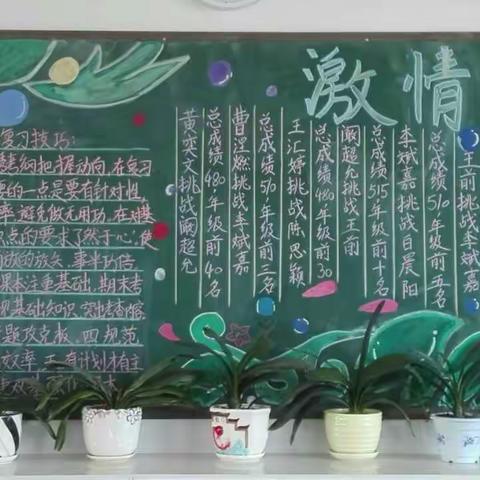 激情
复习技巧:
把握动向,在复习
的一点是要有针对性,
率,避免做无用功,在对
点的要求了然于心,使
放的放矢,事半功倍
课本注重基础,期末考
基础知识
题攻克板,四规范
效率 五有计划有主
王前挑战李斌嘉
总成绩510,年级前五名
李斌嘉挑战白晨阳
总成绩515年级前十名
阚超允挑战王前
总成绩480年级前30
王汇婷挑战陈思颖
总成绩510,年级前三名
曹江燃挑战李斌嘉
总成绩480,年级前40名
黄奕文挑战阚超允